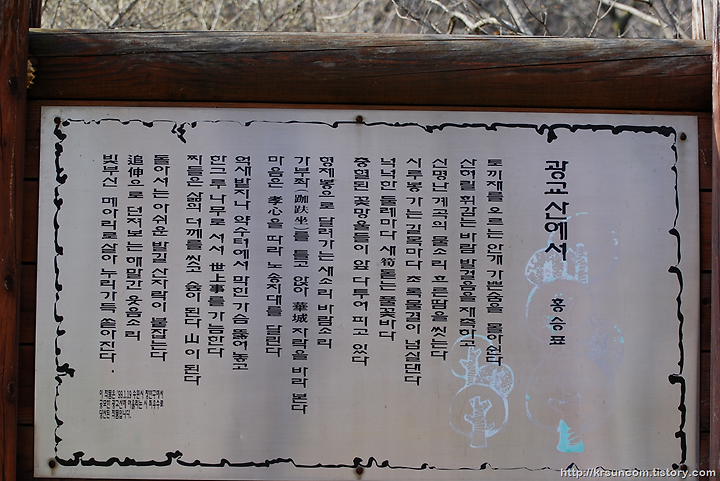 광교산에서
홍승표
토끼재를 오르는 안개 가쁜숨을 몰아쉬다
산허리 휘감는 바람 발걸음을 재촉하고
신명난 계곡의 물소리 흐른땀을 씻는다
시루봉 가는 길목마다 초록물결이 넘실댄다
넉넉한 둘레마다 새筍 돋는 풀꽃바다
충혈된 꽃망울들이 앞 다투어 피고 있다
형제봉으로 달려가는 새소리 바람소리
가부좌(跏趺坐)를 틀고 앉아 華城 자락을 바라 본다
마음은 孝心을 따라 노송지대를 달린다
억새밭지나 약수터에서 막힌 가슴 뚫어 놓고
한그루 나무로 서서 世上事를 가늠한다
찌들은 삶의 더께를 씻고 숲이 된다 山이 된다
돌아서는 아쉬운 발길 산자락이 붙잡는다
追伸으로 던져 보는 해맑간 웃음소리
빛부신 메아리로살아 누리가득 쏟아진다.
이 작품은 '99.1.19 수원시 장안구에서
공모한 광교산에 어울리는 시 최우수로
당선된 작품입니다.
http://krsuncom.tistory.com